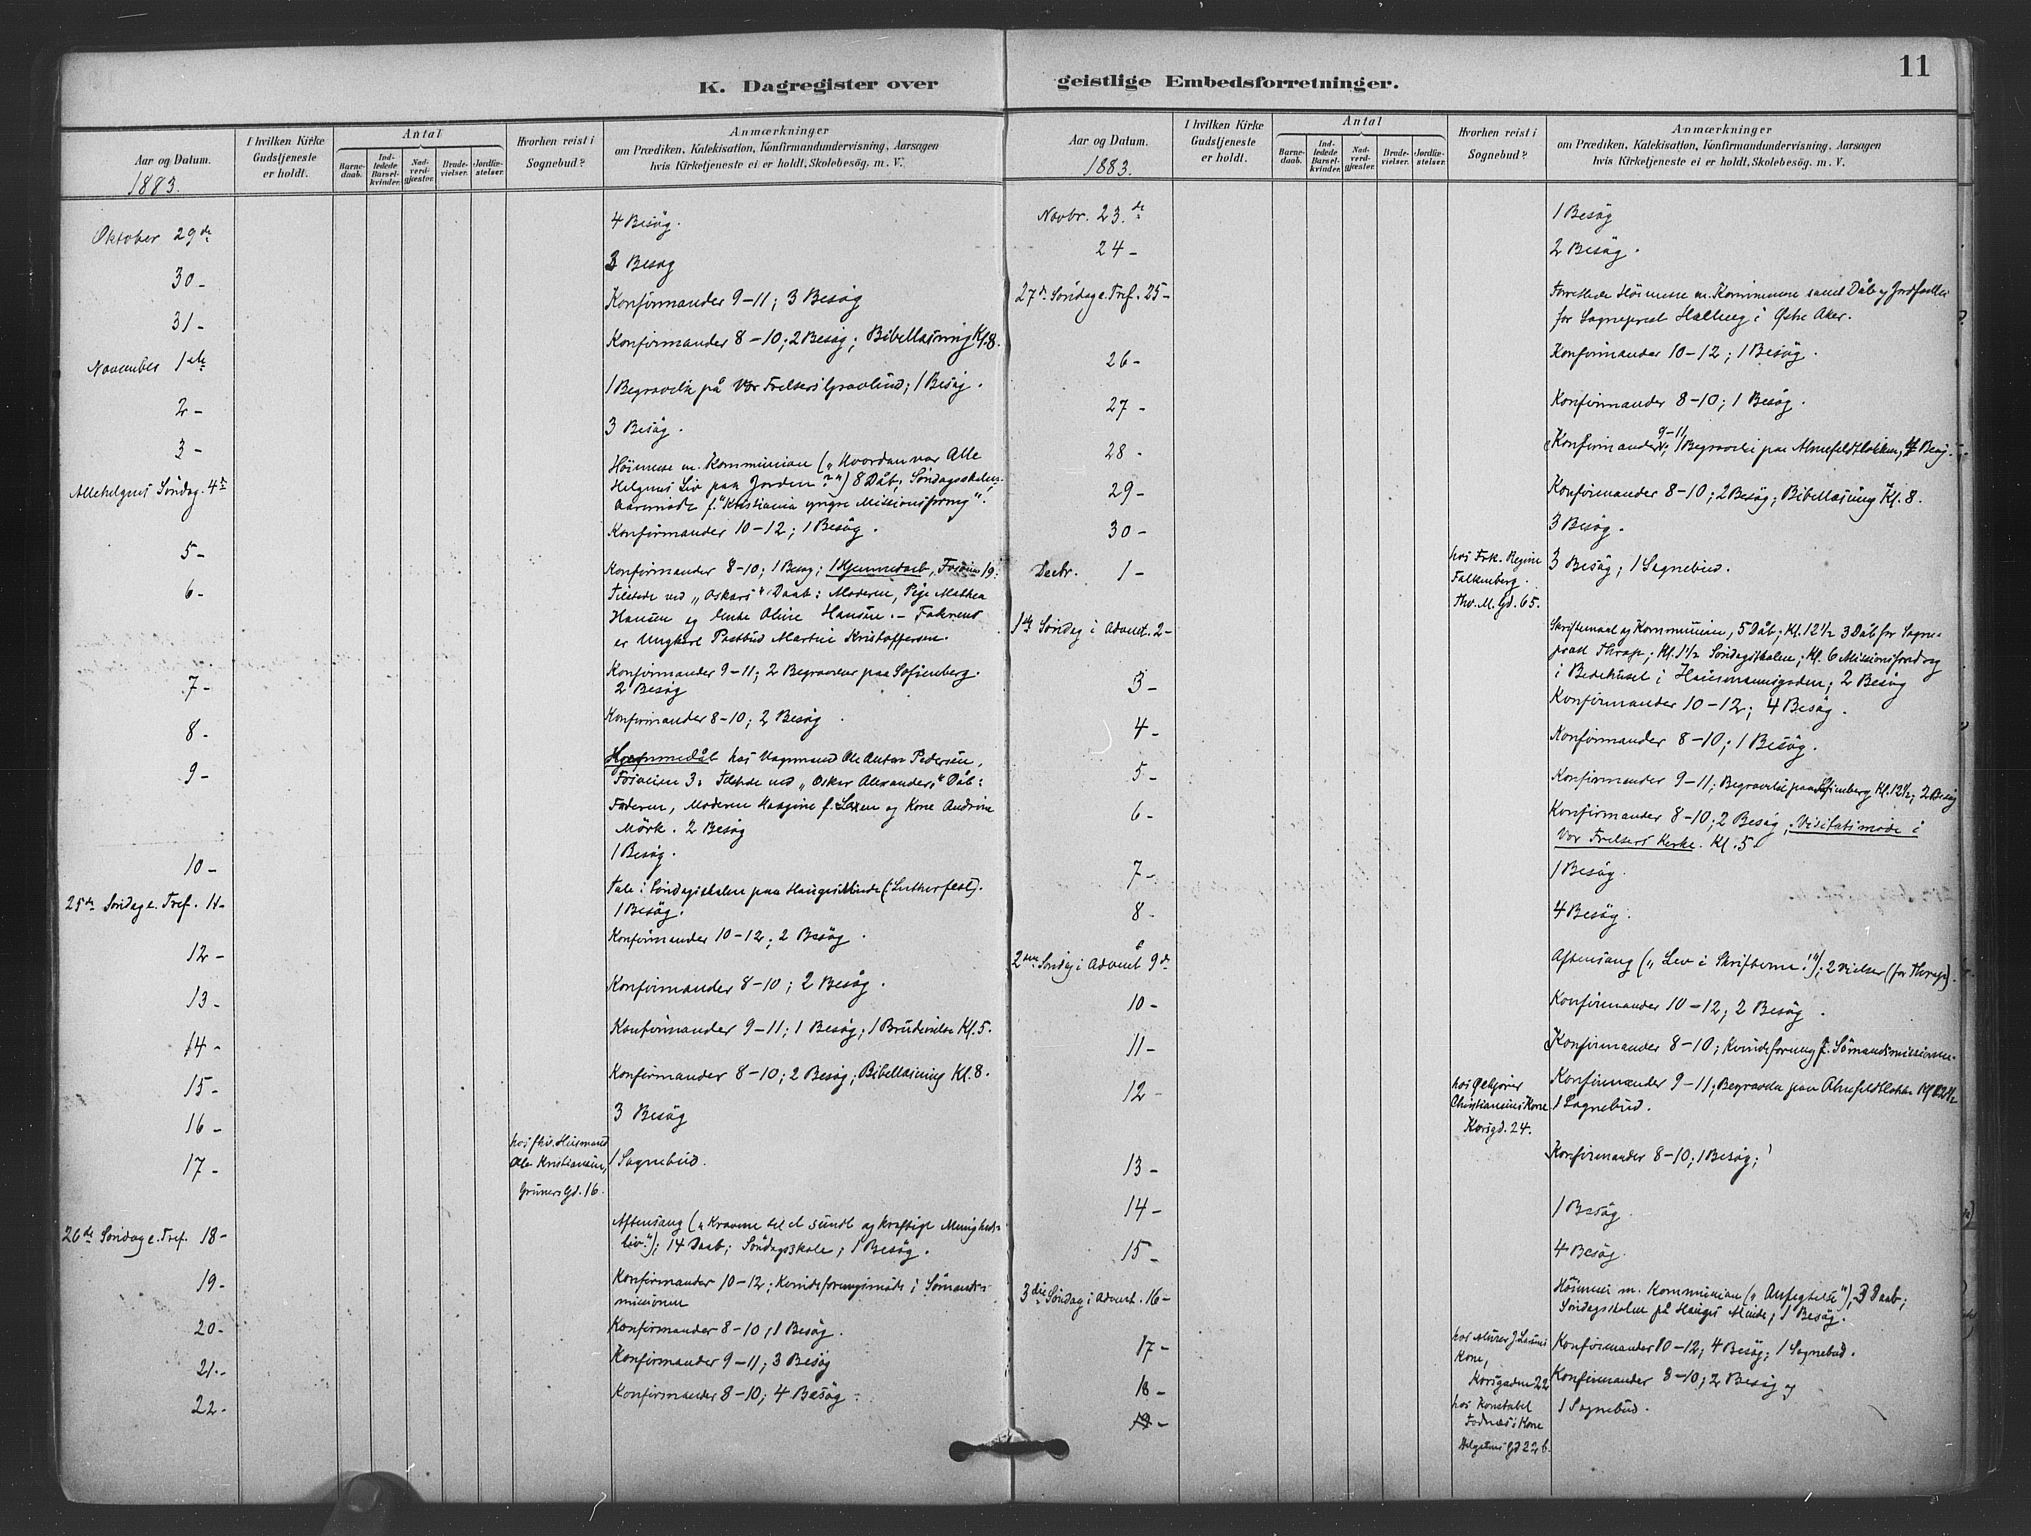 11
K. Dagregister over
geistlige Embedsforretninger.
Aar og Datum.
1883.
I hvilken Kirke
Gudstjeneste
er holdt.
Antal
Barne-
daab.
Ind-
ledede
Barsel-
kvinder.
Nad-
verd-
gjæster.
Brude-
vielser.
Jordfæ-
stelser.
Hvorhen reist i
Sognebud?
Anmærkninger
om Prædiken, Katekisation, Konfirmandundervisning, Aarsagen
hvis Kirketjeneste ei er holdt, Skolebesøg. m. V.
Oktober 29de
4 Besøg.
30 -
3 Besøg
31 -
Konfirmander 9-11; 3 Besøg
November 1ste
Konfirmander 8-10; 2 Besøg; Bibellæsning Kl. 8.
2 -
1 Begravelse på Vor Frelsers Gravlund; 1 Besøg.
3 -
3 Besøg.
Allehelgens Søndag. 4de
Høimesse m. Kommunion ("Hvordan var Alle
Helgens Liv paa Jorden?") 8 Dåb; Søndagsskolen;
Aarsmøde f. "Kristiania yngre Missionsforng".
5 -
Konfirmander 10-12; 1 Besøg.
6 -
Konfirmander 8-10; 1 Besøg; 1 Hjemmedaab, Fosvn 19:
Tilstede ved "Oskars" Daab: Moderen, Pige Mathea
Hansen og Enke Oline Hansen. - Faderen
er Ungkarl Postbud Martin Kristoffersen.
7 -
Konfirmander 9-11; 2 Begravelser paa Sofienberg.
2 Besøg
8 -
Konfirmander 8-10; 2 Besøg.
9 -
Hjemmedåb hos Vognmand Ole Anton Pedersen,
Fosveien 3: Tilstede ved "Oskar Alexanders" Dåb:
Faderen, Moderen Haagine f. Lexen og Kone Andrine
Mörk. 2 Besøg
10 -
1 Besøg.
25de Søndag e. Tref. 11 -
Tale i Søndagsskolen paa Hauges Minde (Lutherfest).
1 Besøg.
12 -
Konfirmander 10-12; 2 Besøg.
13 -
Konfirmander 8-10; 2 Besøg.
14 -
Konfirmander 9-11; 1 Besøg; 1 Brudevielse Kl. 5.
15 -
Konfirmander 8-10; 2 Besøg; Bibellæsning Kl. 8.
16 -
3 Besøg
17 -
hos fhv. Husmand
Ole Kristiansen,
Grüners Gd. 16.
1 Sognebud.
26de Søndag e. Tref. 18 -
Aftensang ("Kravene til et sundt og kraftigt Menigheds-
liv."); 14 Daab; Søndagsskole; 1 Besøg.
19 -
Konfirmander 10-12; Kvindeforeningsmøde i Sømands-
missionen
20 -
Konfirmander 8-10; 1 Besøg.
21 -
Konfirmander 9-11; 3 Besøg
22 -
Konfirmander 8-10; 4 Besøg
Aar og Datum.
1883.
I hvilken Kirke
Gudstjeneste
er holdt.
Antal
Barne-
daab.
Ind-
ledede
Barsel-
kvinder.
Nad-
verd-
gjæster.
Brude-
vielser.
Jordfæ-
stelser.
Hvorhen reist i
Sognebud?
Anmærkninger
om Prædiken, Katekisation, Konfirmandundervisning, Aarsagen
hvis Kirketjeneste ei er holdt, Skolebesøg. m. V.
Novbr. 23.de
1 Besøg
24 -
2 Besøg.
27de Søndag e. Tref. 25 -
Forrettede Høimesse m. Kommunion samt Dåb og Jordfæstelse
for Sogneprest Hallberg i Østre Aker.
26 -
Konfirmander 10-12; 1 Besøg.
27 -
Konfirmander 8-10; 1 Besøg.
28 -
Konfirmander 9-11; 1 Begravelse paa Ahnefeldtløkken; 4 Besøg.
29 -
Konfirmander 8-10; 2 Besøg; Bibellæsning Kl. 8.
30 -
3 Besøg.
Decbr. 1 -
hos Frk. Regine
Falkenberg.
Thv. M. Gd. 65.
3 Besøg; 1 Sognebud.
1ste Søndag i Advent. 2 -
Skriftemaal og Kommunion, 5 Dåb; Kl. 12½ 3 Dåb for Sogne-
prest Thrap; Kl. 1½ Søndagsskolen; Kl. 6 Missionsforedrag
i Bedehuset i Hausmannsgaden; 2 Besøg
3 -
Konfirmander 10-12; 4 Besøg.
4 -
Konfirmander 8-10; 1 Besøg.
5 -
Konfirmander 9-11; Begravelse paa Sofienberg Kl. 12½; 2 Besøg
6 -
Konfirmander 8-10; 2 Besøg; Visitatsmøde i
Vor Frelsers Kirke. Kl. 5.
7 -
1 Besøg.
8 -
4 Besøg.
2den Søndag i Advent 9de
Aftensang ("Lev i Skrifterne!"); 2 Vielser (for Thrap).
10 -
Konfirmander 10-12; 2 Besøg.
11 -
Konfirmander 8-10; Kvindeforening f. Sømandsmissionen.
12 -
Christiansens Kone
Korsgd. 24.
Konfirmander 9-11; Begravelse paa Ahnefeldtløkken Kl 12½
1 Sognebud.
13 -
Konfirmander 8-10; 1 Besøg;
14 -
1 Besøg.
15 -
4 Besøg.
3die Søndag i Advent. 16 -
Høimesse m. Kommunion ("Anfegtelse"); 3 Daab;
Søndagsskolen på Hauges Minde; 1 Besøg.
17 -
hos Murer J. Larsens
Kone,
Korsgaden 22
Konfirmander 10-12; 4 Besøg; 1 Sognebud.
18 -
hos Konstabel
Fodnæs's Kone
Helgesens Gd 22 b.
Konfirmander 8-10; 2 Besøg og
1 Sognebud.
19 -